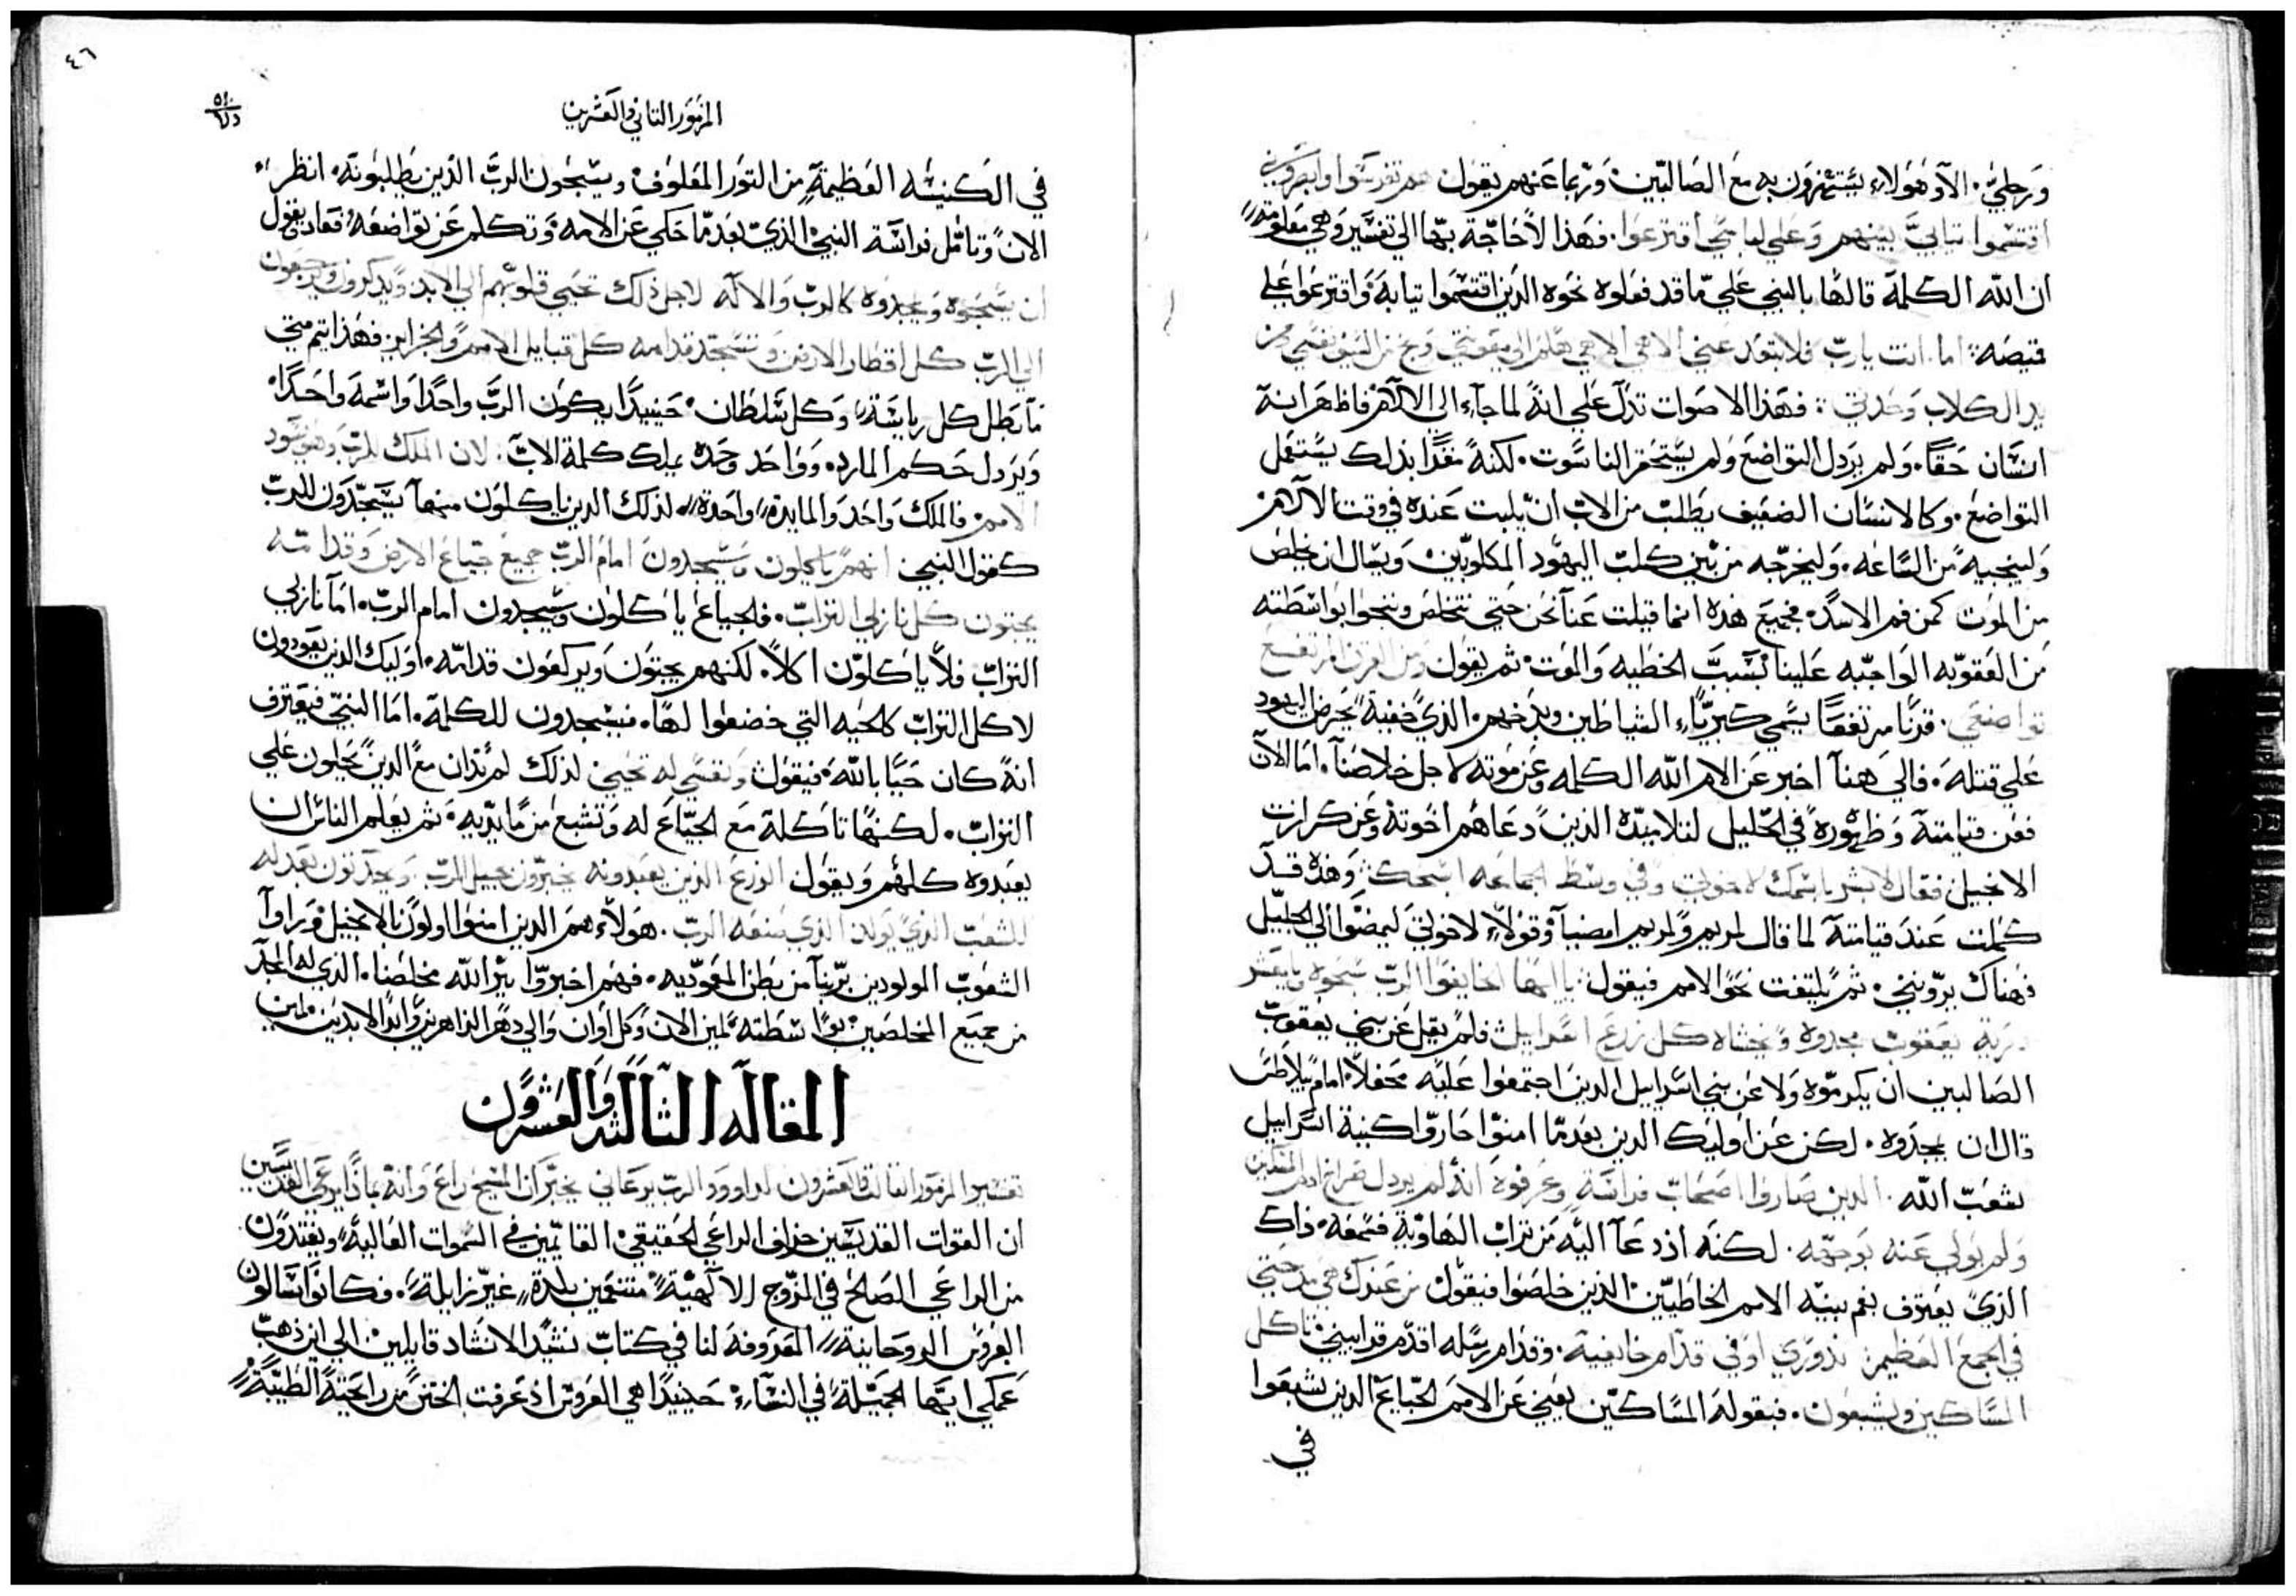 ورجليّ. الآوهولاء يستهزون به مع الصالبين. وربما عنهم يقول هم تفرسوا وابصروني
اقتسموا تيابيَّ بينهم وعلي لباسي اقترعوا. فهذا لا حاجة بها الي تفسير وهي معلومة
ان الله الكلمة قالها بالنبي علي ما قد فعلوه نحوه الذين اقتسموا تيابه واقترعوا علي
قميصه: اما انت يارب فلا تبتعد عني الاهي الاهي هلم الي معونتي ونج من السيف نفسي ومن
يد الكلاب وحدتي: فهذا الاصوات تدل علي انه لما جاء الي الالام فاظهر انه
انسان حقا. ولم يردل التواضع ولم يستحقر الناسوت. لكنه بذلك يستعمل
التواضع. وكالانسان الضعيف يطلب من الاب ان يلبت عنده في وقت الالام
ولينجيه من الساعه. وليخرجه من بين كلب اليهود المكلوبين. ويسال ان يخلص
من الموت كمن فم الاسد. فجميع هذه انما قيلت عنا نحن حتي نتخلص وننجوا بواسطته
من العقوبه الواجبه علينا بسبب الخطيه والموت. ثم يقول ومن القرن المرتفع
تواضعي. قرنا مرتفعا يسمي كبرياء الشياطين وبدخهم. الذي خفية يحرض اليهود
علي قتله. فالي هنا اخبر عن الام الله الكلمه وعن موته لاجل خلاصنا. اما الان
فعن قيامته وظهوره في الجليل لتلاميده الذين دعاهم اخوته وعن كرازت
الانجيل فقال لابشر باسمك لاخوتي وفي وسط الجماعه اسبحك: وهذه قد
كملت عند قيامته لما قال لمريم ولمريم امضيا وقولا لاخوتي ليمضوا الي الجليل
فهناك يروني. ثم يلتفت نحو الامم فيقول: يا ايها الخايفوا الرب سبحوه يا معشر
درية يعقوب مجدوه ويخشاه كل زرع اسراييل: فلم يقل عن بني يعقوب
الصالبين ان يكرموه ولا عن بني اسراييل الدين اجتمعوا عليه محفلا امام بيلاطس
قال ان يمجدوه. لكن عن اوليك الدين بعدما امنوا صاروا كنيبة اسراييل
لشعب الله. الدين صاروا اصحاب فراسة وعرفوه انه لم يردل صراخ المسكين
ولم يولي عنه بوجهه. لكنه اذ دعا اليه من تراب الهاوية فسمعه. ذاك
الذي يعترف بفم بيته الامم الخاطيين. الذين خلصوا فيقول من عندك هي مدحتي
في الجمع العظيم: ندوري اوفي قدام خايفيه. وقدام رسله اقدم قرابيني: تاكل
المساكين ويشبعون. فبقوله المساكين يعني عن الامم الجياع الدين شبعوا
في
٤٦
المزمور التاني والعشرين
في الكنيسه العظيمة من التور المعلوف. ويسبحون الربَّ الذين يطلبونه. انظر
الان وتامل فراسة النبي الذي بعدما حكي عن الامه وتكلم عن تواضعه فعاد يقول
ان يسبحوه ويمجدوه كالرب والاله لاجل ذلك تحيي قلوبهم الي الابد ويدكرون ويرجعون
الي الرب كل اقطار الارض وتسجد قدامه كل قبايل الامم والجزاير فهذا يتم متي
ما بطل كل رياسة وكل سلطان. حينيدا يكون الربَّ واحدا واسمه واحدا.
ويردل حكم المارد. وواحد وحده يملك كلمة الاب: لان الملك للرب وهو يسود
الامم: فالملك واحد والمايدة واحدة. لذلك الدين ياكلون منها يسجدون للربّ
كقول النبي انهم ياكلون ويسجدون امام الرب جميع جياع الارض وقدامه
يجتون كل نازلي التراب. فالجياع ياكلون ويسجدون امام الرب. اما نازلي
التراب فلا ياكلون اكلا. لكنهم يجتون ويركعون قدامه. اوليك الدين يعودون
لاكل التراب كالحيه التي خضعوا لها. فيسجدون للكلمة. اما النبي فيعترف
انه كان حيا بالله. فيقول ونفسي له تحيي: لذلك لم تدان مع الدين يحلون علي
التراب. لكنها تاكلة مع الجياع له وتشبع من مايديه. ثم يعلم الناس ان
يعبدوه كلهم ويقول الزرع الدين يعبدونه يخبرون بجيل الرب ويحدتون بعدله
للشعب الدي يولد الذي صنعه الرب. هولاء هم الدين امنوا اولا بالانجيل وراوا
الشعوب المولودين بربنا من بطن المعموديه. فهم اخبروا ببر الله مخلصنا. الذي له المجد
من جميع المخلصين بواسطته لمين الان وكل اوان والي دهر الداهرين وابد الابدين امين
المقاله التالته والعشرون
تفسير المزمور التالت والعشرون لداوود الرب يرعاني يخبر ان المسيح راع وانه بماذا يرعي القديسين
ان القوات القديسين خراف الراعي الحقيقي القايمين في السموات العالية ويغتدون
من الراعي الصالح في المروج الالهية متنعمين بلدة غير زايلة. فكانوا يسالون
العروس الروحانية المعروفة لنا في كتاب نشيد الانشاد قايلين الي اين ذهب
عمكي ايتها الجميلة في النساء. حينيدا هي العروس اذ عرفت الختن من راحيته الطيبة